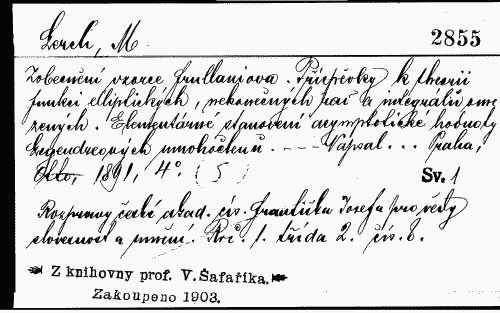 Lerch, M.
2855
Zobecnění vzorce frullaniova. Příspěvky k theorii
funkcí elliptických, nekonečných řad a integrálů ome-
zených. Elementárné stanovení asymptotické hodnoty
Legendreových mnohočlenů. --- Napsal ... Praha,
Otto, 1891, 4°. (5)
Sv. 1
Rozpravy české akad. cís. Františka Josefa pro vědy
slovesnost a umění. Roč. 1. třída 2. čís. 8.
Z knihovny prof. V. Šafaříka.
Zakoupeno 1903.